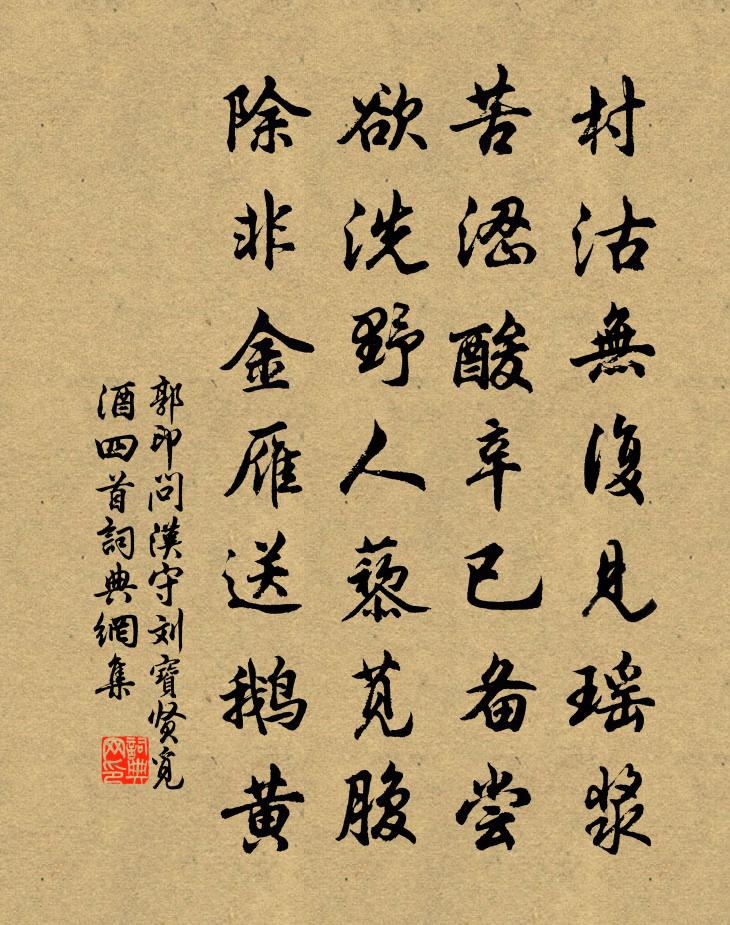 村沽無復見瑶漿
苦澀酸辛已备尝
欲洗野人藜苋腹
除非金雁送鹅黄
郭印問漢守刘寶贤覓
酒四首詞典網集
詞典
网印